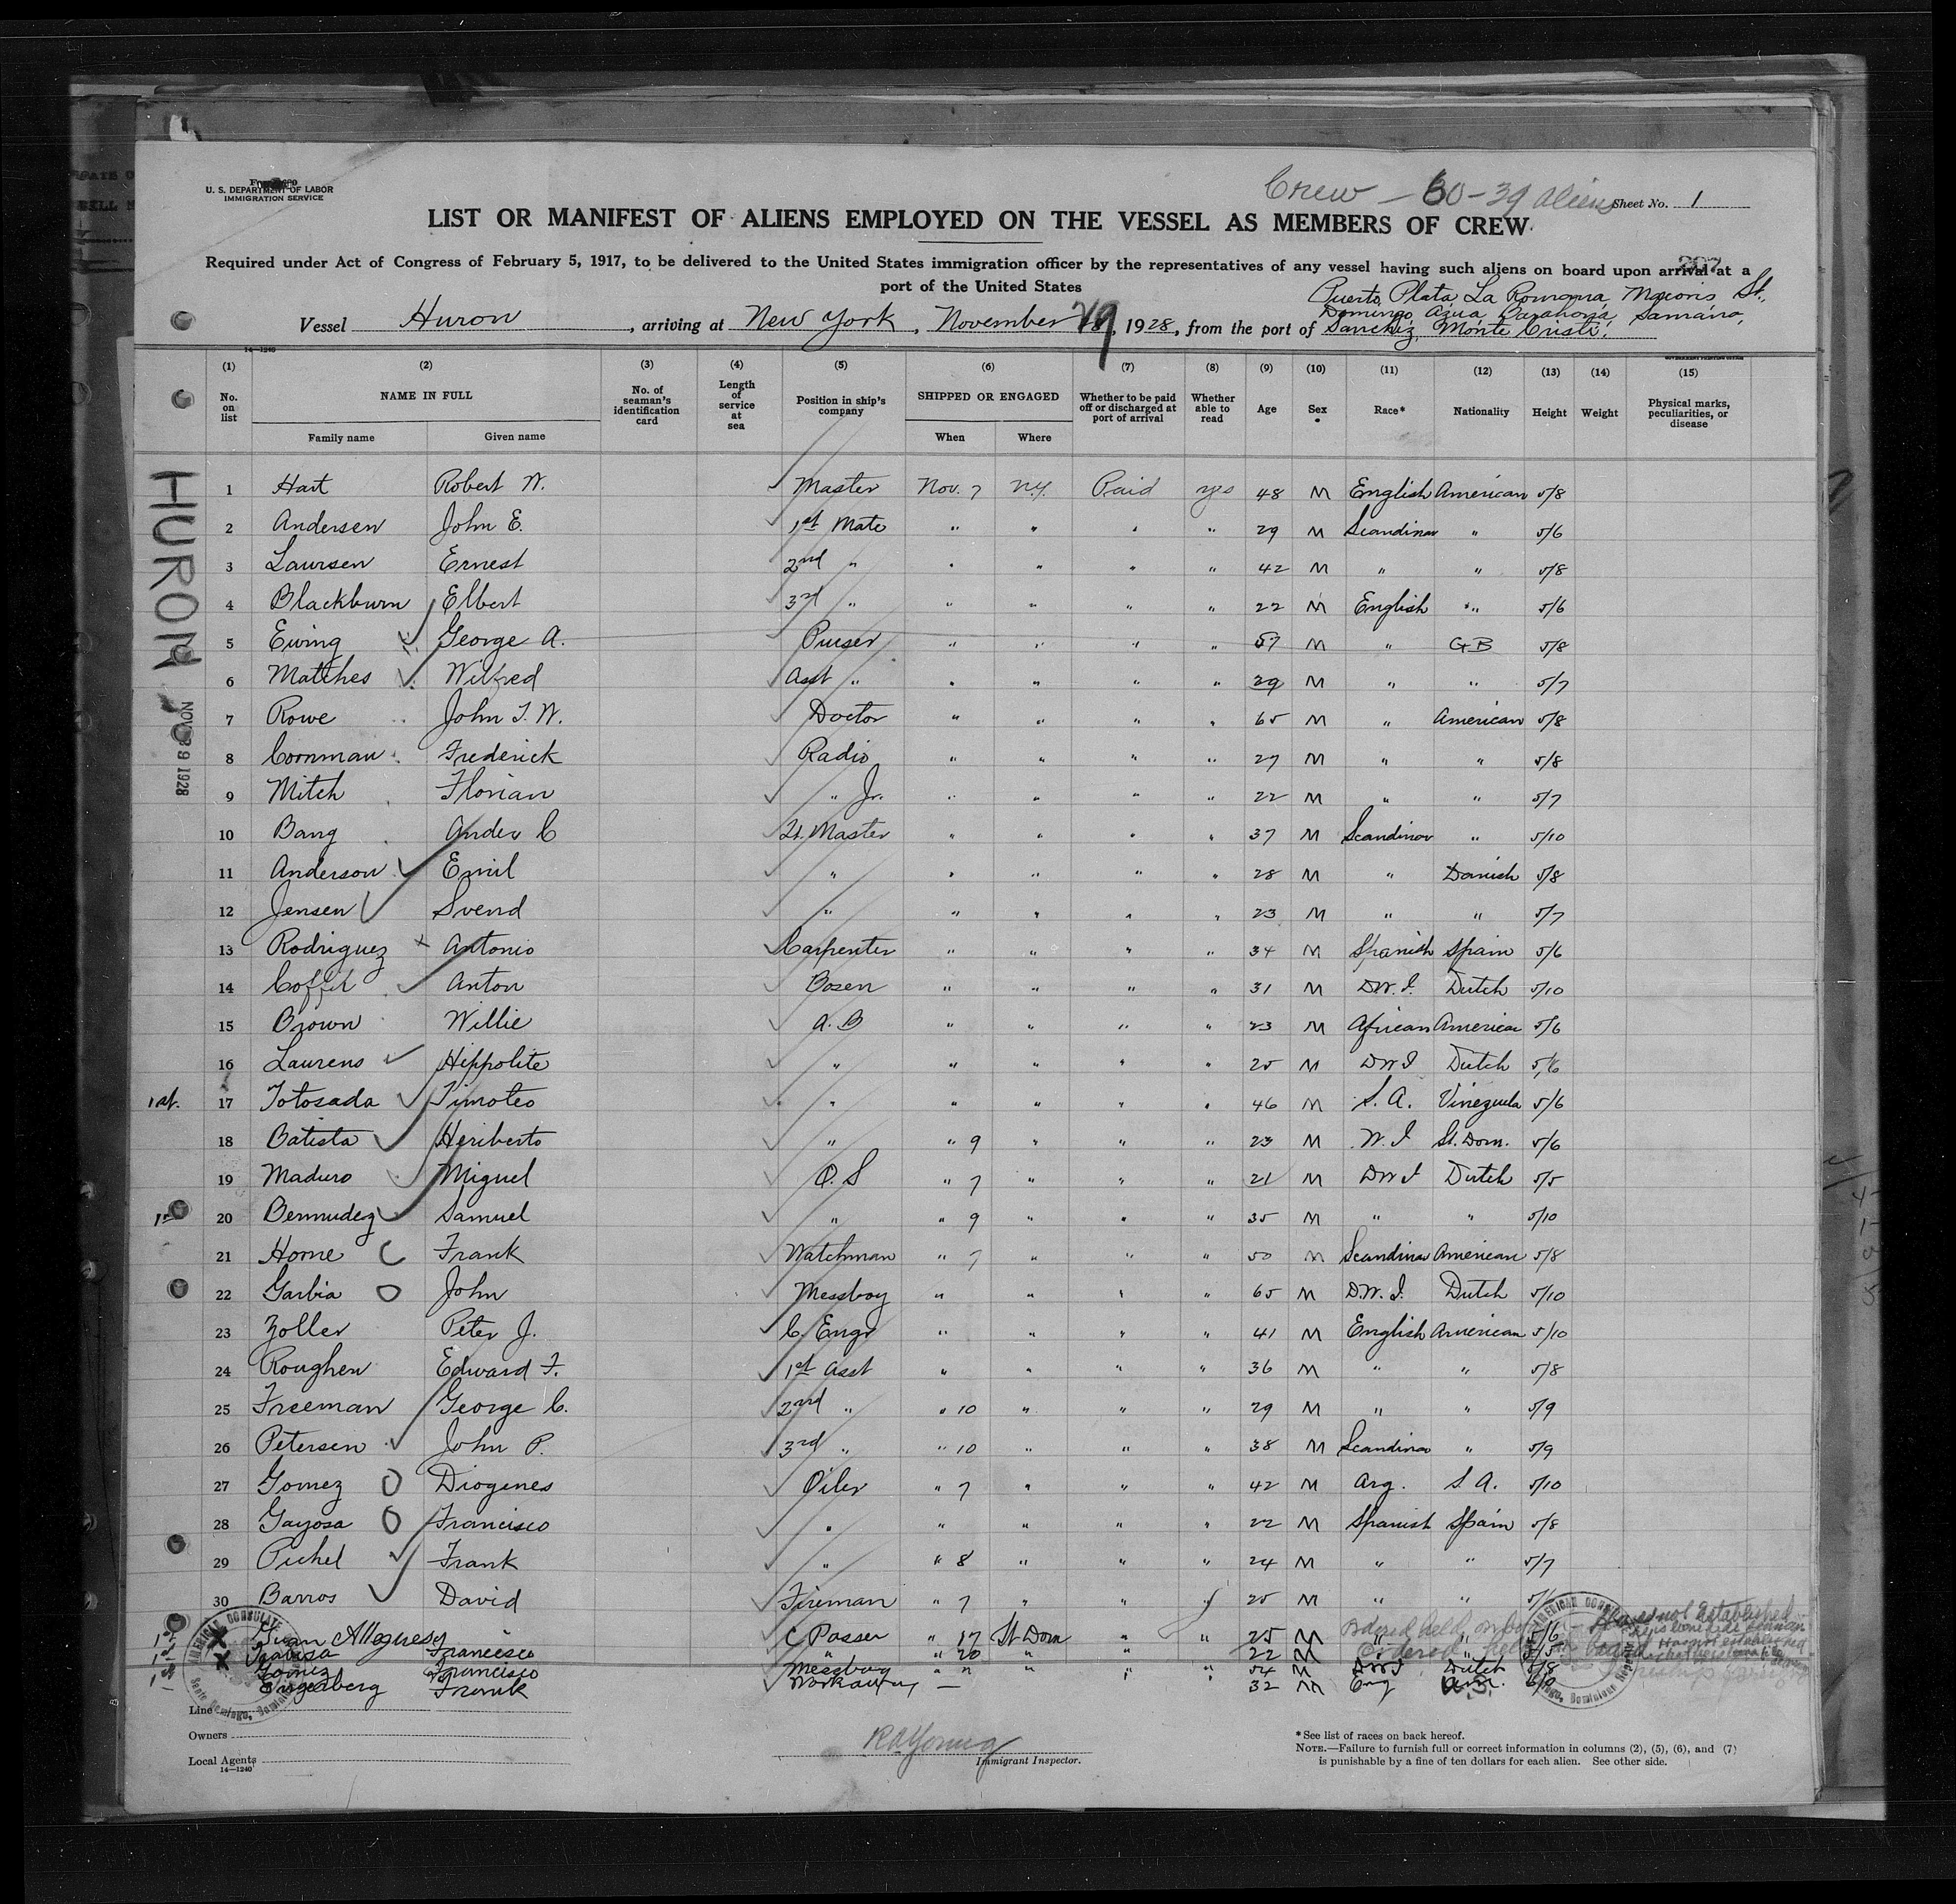 U. S. DEPARTMENT OF LABOR
IMMIGRATION SERVICE
Crew - 60 - 39 aliens
Sheet No. 1
LIST OR MANIFEST OF ALIENS EMPLOYED ON THE VESSEL AS MEMBERS OF CREW
Required under Act of Congress of February 5, 1917, to be delivered to the United States immigration officer by the representatives of any vessel having such aliens on board upon arrival at a
port of the United States
207
Puerto Plata, La Romana, Macoris, St.
Domingo, Azua, Barahona, Samana,
Vessel Huron, arriving at New York, November 19, 1928, from the port of Sanchez, Monte Cristi.
14—1240
(1) (2) (3) (4) (5) (6) (7) (8) (9) (10) (11) (12) (13) (14) (15)
No. on list NAME IN FULL No. of seaman's identification card Length of service at sea Position in ship's company SHIPPED OR ENGAGED Whether to be paid off or discharged at port of arrival Whether able to read Age Sex Race* Nationality Height Weight Physical marks, peculiarities, or disease
Family name Given name When Where
HURON
NOV 1928
1 Hart Robert W. Master Nov. 7 N.Y. Paid yes 48 M English American 5/8
2 Andersen John E. 1st Mate " " " " 29 M Scandinav " 5/6
3 Laursen Ernest 2nd " " " " " 42 M " " 5/8
4 Blackburn Elbert 3rd " " " " " 22 M English " 5/6
5 Ewing George A. Purser " " " " 57 M " GB 5/8
6 Matthes Wilfred Asst " " " " " 29 M " " 5/7
7 Rowe John T. W. Doctor " " " " 65 M " American 5/8
8 Cornman Frederick Radio " " " " 27 M " " 5/8
9 Mitch Florian " Jr. " " " " 22 M " " 5/7
10 Bang Ander C Qt. Master " " " " 37 M Scandinav " 5/10
11 Anderson Emil " " " " " 28 M " Danish 5/8
12 Jensen Svend " " " " " 23 M " " 5/7
13 Rodriguez Antonio Carpenter " " " " 34 M Spanish Spain 5/6
14 Anton Bosen " " " " 31 M D.W.I. Dutch 5/10
15 Brown Willie A. B " " " " 23 M African American 5/6
16 Laurens Hippolite " " " " " 25 M DWI Dutch 5/6
1st. 17 Totosada Timoteo " " " " " 46 M S. A. Vinezuela 5/6
18 Batista Heriberto " " 9 " " " 23 M W. I St. Dom. 5/6
19 Maduro Miguel O. S " 7 " " " 21 M DWI Dutch 5/5
1st 20 Bermudez Samuel " " 9 " " " 35 M " " 5/10
21 Horne Frank Watchman " 7 " " " 50 M Scandinav American 5/8
22 Garbia John Messboy " " " " 65 M D.W.I. Dutch 5/10
23 Zoller Peter J. C. Engr " " " " 41 M English American 5/10
24 Roughen Edward F. 1st Asst " " " " 36 M " " 5/8
25 Freeman George C. 2nd " " 10 " " " 29 M " " 5/9
26 Petersen John P. 3rd " " 10 " " " 38 M Scandinav " 5/9
27 Gomez Diogenes Oiler " 7 " " " 42 M Arg. S. A. 5/10
28 Gayosa Francisco " " " " " 22 M Spanish Spain 5/8
29 Pichel Frank " " 8 " " " 24 M " " 5/7
30 Barros David Fireman " 7 " " " 25 M " "
1st X Juan C Passer " 17 St Dom " " 25 M " " 5/6
1st X Francisco " " 20 " " 22 M " 5/5
1st Gomez Francisco Messboy " " " " 54 M DWI Dutch 5/8
Engerberg Frank Workaway — 32 M Eng
ordered held on board
ordered held on board
AMERICAN CONSULATE
Santo Domingo, Dominican
Line
Owners
Local Agents
14—1240
RA Young
Immigrant Inspector.
*See list of races on back hereof.
NOTE.—Failure to furnish full or correct information in columns (2), (5), (6), and (7)
is punishable by a fine of ten dollars for each alien. See other side.